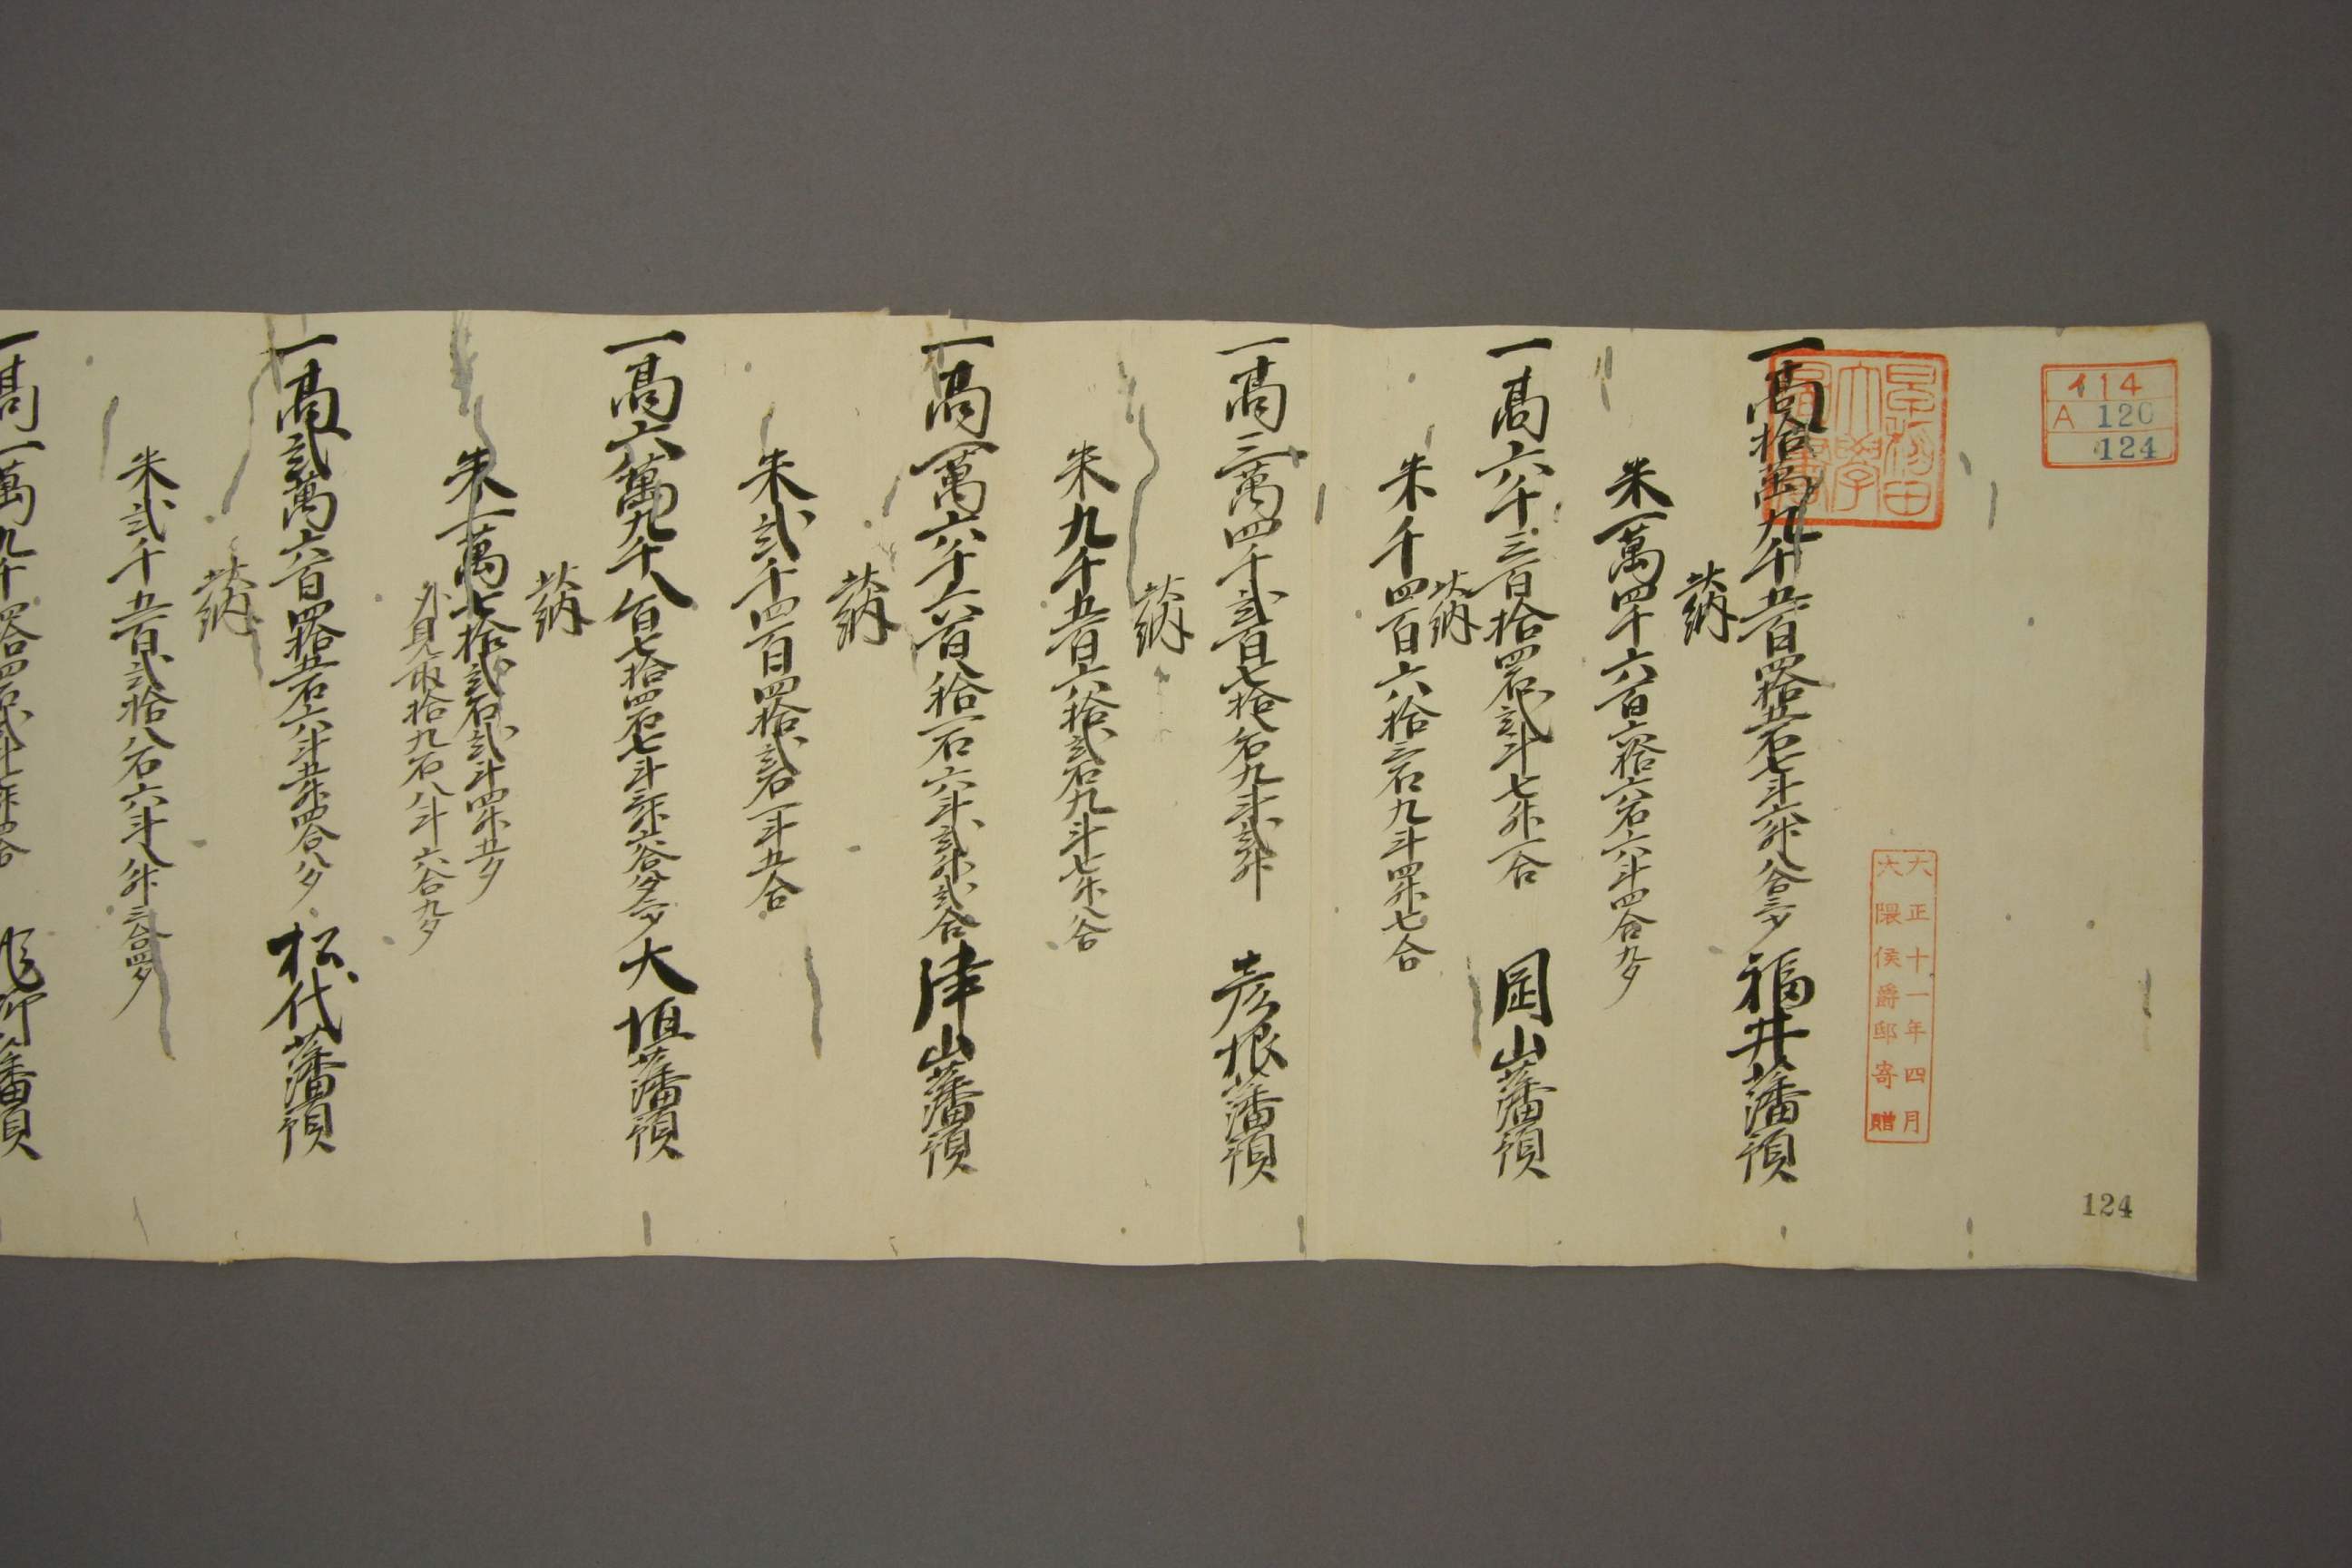 イ14
A 120
124
早稲田
大學
圖書
大正十一年四月
大隈侯爵邸寄贈
124
一高拾萬九千五百四拾五石七斗六升八合三夕 福井藩預
此納
米一萬四千六百六拾六石六斗四合九夕
一高六千三百拾四石弐斗七升一合 岡山藩預
此納
米千四百六拾三石九斗四升七合
一高三萬四千弐百七拾石九斗弐升 彦根藩預
此納
米九千五百六拾弐石九斗七升八合
一高一萬六千六百八拾一石六斗弐升弐合 津山藩預
此納
米弐千四百四拾弐石一斗五合
一高六萬九千八百七拾四石七斗三升 大垣藩預
此納
米一萬七拾弐石弐斗四升五夕
外見取拾九石八斗六合九夕
一高弐萬六百四拾五石六斗五升四合八夕 松代藩預
此納
米弐千五百弐拾八石六斗八升三合四夕
一高一萬九千四拾四石弐斗 藩預